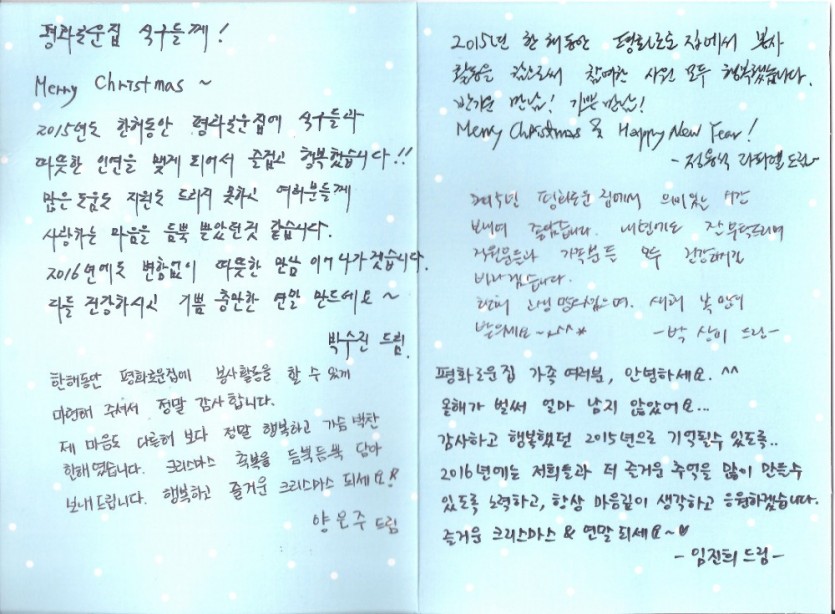 평화로운집 식구들께!
Merry Christmas ~
2015년도 한해동안 평화로운집에 식구들과
따뜻한 인연을 맺게 되어서 즐겁고 행복했습니다!!
많은 도움도 지원도 드리지 못하고 여러분들께
사랑하는 마음을 듬뿍 받았던것 같습니다.
2016년에도 변함없이 따뜻한 만남 이어나가겠습니다.
다들 건강하시고 기쁨 충만한 연말 만드세요~
박수진 드림.
한해동안 평화로운집에 봉사활동을 할 수 있게
마련해 주셔서 정말 감사합니다.
제 마음도 다른해 보다 정말 행복하고 가슴벅찬
한해였습니다. 크리스마스 축복을 듬뿍듬뿍 담아
보내드립니다. 행복하고 즐거운 크리스마스 되세요!
양은주 드림
2015년 한해동안 평화로운 집에서 봉사
활동을 함으로써 참여한 사원 모두 행복했습니다.
반가운 만남! 기쁜 만남!
Merry Christmas & Happy New Year!
- 정용식 라파엘 드림 -
2015년 평화로운집에서 의미있는 시간
보내어 좋았습니다. 내년에도 잘 부탁드리며
직원분들과 가족분들 모두 건강하길
바라겠습니다.
한해 고생 많으셨으며, 새해 복 많이
받으세요~^^*
- 박상이 드림 -
평화로운집 가족 여러분, 안녕하세요. ^^
올해가 벌써 얼마 남지 않았어요...
감사하고 행복했던 2015년으로 기억될수 있도록..
2016년에는 저희들과 더 즐거운 추억을 많이 만들수
있도록 노력하고, 항상 마음깊이 생각하고 응원하겠습니다.
즐거운 크리스마스 & 연말 되세요~♥
- 임진희 드림 -